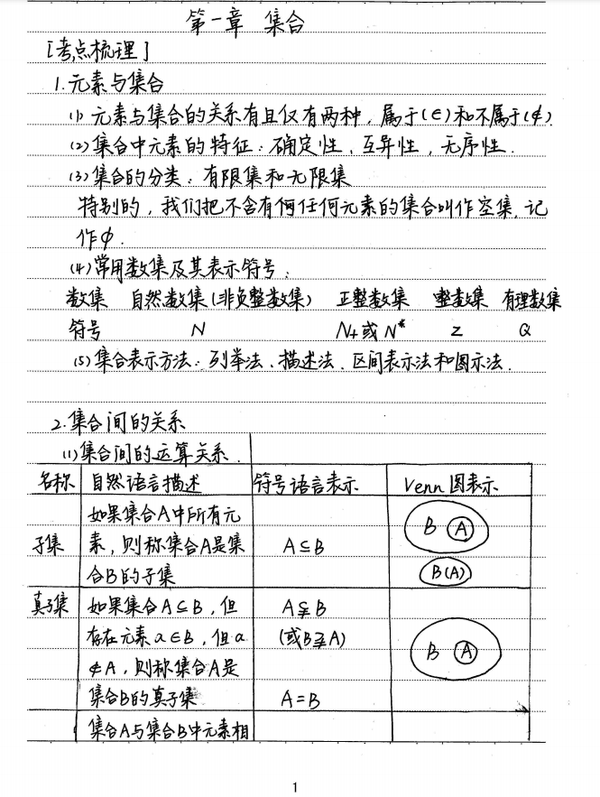 第一章 集合
[考点梳理]
1.元素与集合
(1)元素与集合的关系有且仅有两种,属于(∈)和不属于(∉)
(2)集合中元素的特征:确定性,互异性,无序性.
(3)集合的分类:有限集和无限集
特别的,我们把不含有何任何元素的集合叫作空集,记
作∅.
(4)常用数集及其表示符号:
数集 自然数集(非负整数集) 正整数集 整数集 有理数集
符号 N N+或N* Z Q
(5)集合表示方法:列举法、描述法、区间表示法和图示法.
2.集合间的关系
(1)集合间的运算关系.
名称 自然语言描述 符号语言表示 Venn图表示
如果集合A中所有元 B A
子集 素,则称集合A是集 A⊆B
合B的子集 B(A)
真子集 如果集合A⊆B,但 A⫋B
存在元素a∈B,但a (或B⫌A) B A
∉A,则称集合A是
集合B的真子集 A=B
集合A与集合B中元素相
1